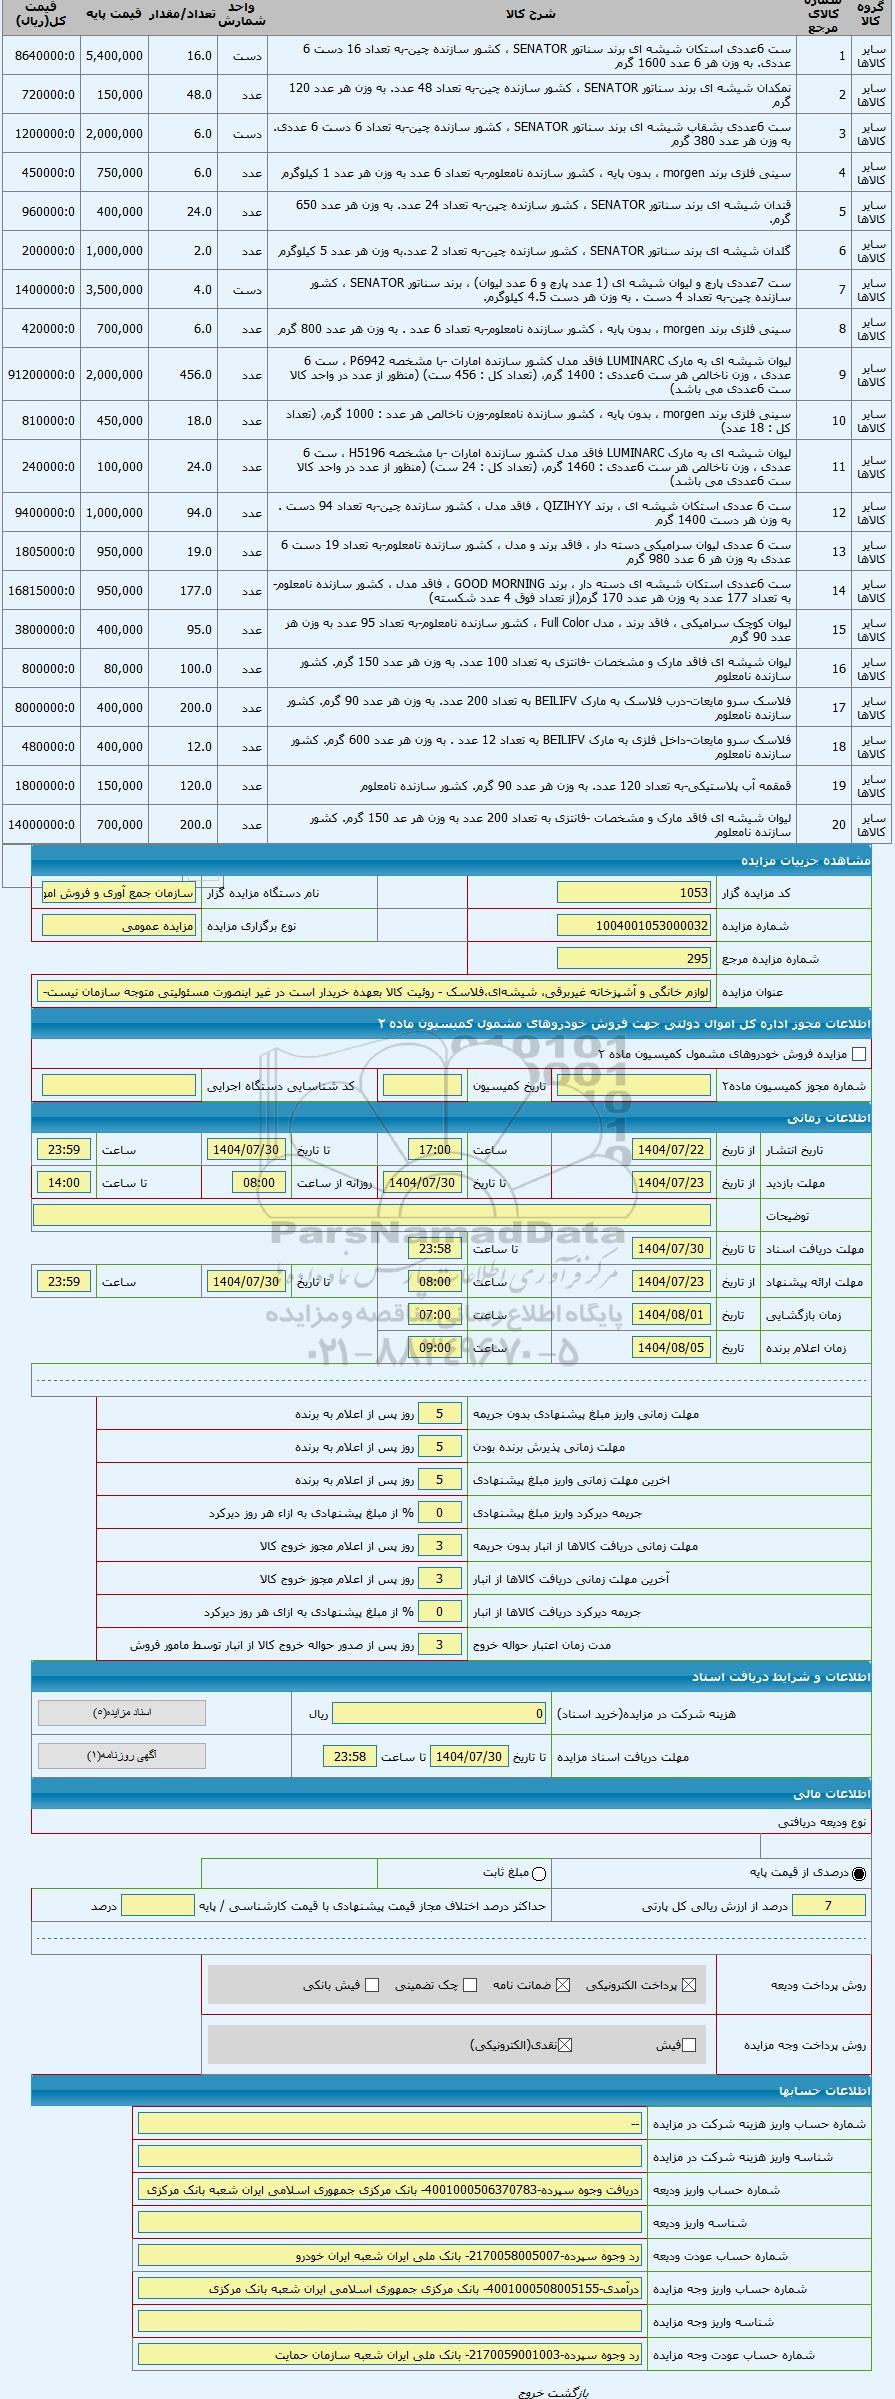 گروه کالا	شماره کالای مرجع	شرح کالا	واحد شمارش	تعداد/مقدار	قیمت پایه	قیمت کل(ریال)
سایر کالاها	1	ست 6عددی استکان شیشه ای برند سناتور SENATOR ، کشور سازنده چین-به تعداد 16 دست 6 عددی. به وزن هر 6 عدد 1600 گرم	دست	16.0	5,400,000	8640000:0
سایر کالاها	2	نمکدان شیشه ای برند سناتور SENATOR ، کشور سازنده چین-به تعداد 48 عدد. به وزن هر عدد 120 گرم	عدد	48.0	150,000	720000:0
سایر کالاها	3	ست 6عددی بشقاب شیشه ای برند سناتور SENATOR ، کشور سازنده چین-به تعداد 6 دست 6 عددی. به وزن هر عدد 380 گرم	دست	6.0	2,000,000	1200000:0
سایر کالاها	4	سینی فلزی برند morgen ، بدون پایه ، کشور سازنده نامعلوم-به تعداد 6 عدد به وزن هر عدد 1 کیلوگرم	عدد	6.0	750,000	450000:0
سایر کالاها	5	قندان شیشه ای برند سناتور SENATOR ، کشور سازنده چین-به تعداد 24 عدد. به وزن هر عدد 650 گرم.	عدد	24.0	400,000	960000:0
سایر کالاها	6	گلدان شیشه ای برند سناتور SENATOR ، کشور سازنده چین-به تعداد 2 عدد.به وزن هر عدد 5 کیلوگرم	عدد	2.0	1,000,000	200000:0
سایر کالاها	7	ست 7عددی پارچ و لیوان شیشه ای (1 عدد پارچ و 6 عدد لیوان) ، برند سناتور SENATOR ، کشور سازنده چین-به تعداد 4 دست . به وزن هر دست 4.5 کیلوگرم.	دست	4.0	3,500,000	1400000:0
سایر کالاها	8	سینی فلزی برند morgen ، بدون پایه ، کشور سازنده نامعلوم-به تعداد 6 عدد . به وزن هر عدد 800 گرم	عدد	6.0	700,000	420000:0
سایر کالاها	9	لیوان شیشه ای به مارک LUMINARC فاقد مدل کشور سازنده امارات -با مشخصه P6942 ، ست 6 عددی ، وزن ناخالص هر ست 6عددی : 1400 گرم، (تعداد کل : 456 ست) (منظور از عدد در واحد کالا ست 6عددی می باشد)	عدد	456.0	2,000,000	91200000:0
سایر کالاها	10	سینی فلزی برند morgen ، بدون پایه ، کشور سازنده نامعلوم-وزن ناخالص هر عدد : 1000 گرم، (تعداد کل : 18 عدد)	عدد	18.0	450,000	810000:0
سایر کالاها	11	لیوان شیشه ای به مارک LUMINARC فاقد مدل کشور سازنده امارات -با مشخصه H5196 ، ست 6 عددی ، وزن ناخالص هر ست 6عددی : 1460 گرم، (تعداد کل : 24 ست) (منظور از عدد در واحد کالا ست 6عددی می باشد)	عدد	24.0	100,000	240000:0
سایر کالاها	12	ست 6 عددی استکان شیشه ای ، برند QIZIHYY ، فاقد مدل ، کشور سازنده چین-به تعداد 94 دست . به وزن هر دست 1400 گرم	عدد	94.0	1,000,000	9400000:0
سایر کالاها	13	ست 6 عددی لیوان سرامیکی دسته دار ، فاقد برند و مدل ، کشور سازنده نامعلوم-به تعداد 19 دست 6 عددی به وزن هر 6 عدد 980 گرم	عدد	19.0	950,000	1805000:0
سایر کالاها	14	ست 6عددی استکان شیشه ای دسته دار ، برند GOOD MORNING ، فاقد مدل ، کشور سازنده نامعلوم-به تعداد 177 عدد به وزن هر عدد 170 گرم(از تعداد فوق 4 عدد شکسته)	عدد	177.0	950,000	16815000:0
سایر کالاها	15	لیوان کوچک سرامیکی ، فاقد برند ، مدل Full Color ، کشور سازنده نامعلوم-به تعداد 95 عدد به وزن هر عدد 90 گرم	عدد	95.0	400,000	3800000:0
سایر کالاها	16	لیوان شیشه ای فاقد مارک و مشخصات -فانتزی به تعداد 100 عدد. به وزن هر عدد 150 گرم. کشور سازنده نامعلوم	عدد	100.0	80,000	800000:0
سایر کالاها	17	فلاسک سرو مایعات-درب فلاسک به مارک BEILIFV به تعداد 200 عدد. به وزن هر عدد 90 گرم. کشور سازنده نامعلوم	عدد	200.0	400,000	8000000:0
سایر کالاها	18	فلاسک سرو مایعات-داخل فلزی به مارک BEILIFV به تعداد 12 عدد . به وزن هر عدد 600 گرم. کشور سازنده نامعلوم	عدد	12.0	400,000	480000:0
سایر کالاها	19	قمقمه آب پلاستیکی-به تعداد 120 عدد. به وزن هر عدد 90 گرم. کشور سازنده نامعلوم	عدد	120.0	150,000	1800000:0
سایر کالاها	20	لیوان شیشه ای فاقد مارک و مشخصات -فانتزی به تعداد 200 عدد به وزن هر عد 150 گرم. کشور سازنده نامعلوم	عدد	200.0	700,000	14000000:0
مشاهده جزییات مزایده
کد مزایده گزار 1053 نام دستگاه مزایده گزار سازمان جمع آوری و فروش امو
شماره مزایده 1004001053000032 نوع برگزاری مزایده مزایده عمومی
شماره مزایده مرجع 295
عنوان مزایده لوازم خانگی و آشپزخانه غیربرقی، شیشه‌ای،فلاسک - روئیت کالا بعهده خریدار است در غیر اینصورت مسئولیتی متوجه سازمان نیست-
اطلاعات مجوز اداره کل اموال دولتی جهت فروش خودروهای مشمول کمیسیون ماده ۲
مزایده فروش خودروهای مشمول کمیسیون ماده ۲
شماره مجوز کمیسیون ماده۲ تاریخ کمیسیون کد شناسایی دستگاه اجرایی
اطلاعات زمانی
تاریخ انتشار از تاریخ 1404/07/22 ساعت 17:00 تا تاریخ 1404/07/30 ساعت 23:59
مهلت بازدید از تاریخ 1404/07/23 تا تاریخ 1404/07/30 روزانه از ساعت 08:00 تا ساعت 14:00
توضیحات
ParsNamadData
مهلت دریافت اسناد تا تاریخ 1404/07/30 تا ساعت 23:58
مهلت ارائه پیشنهاد از تاریخ 1404/07/23 ساعت 08:00 تا تاریخ 1404/07/30 ساعت 23:59
زمان بازگشایی تاریخ 1404/08/01 ساعت 07:00
پایگاه اطلاع رسانی مناقصه و مزایده
زمان اعلام برنده تاریخ 1404/08/05 ساعت 09:00
۰۲۱-۸۸۳۴۹۶۷۰-۵
مهلت زمانی واریز مبلغ پیشنهادی بدون جریمه 5 روز پس از اعلام به برنده
مهلت زمانی پذیرش برنده بودن 5 روز پس از اعلام به برنده
اخرین مهلت زمانی واریز مبلغ پیشنهادی 5 روز پس از اعلام به برنده
جریمه دیرکرد واریز مبلغ پیشنهادی 0 % از مبلغ پیشنهادی به ازاء هر روز دیرکرد
مهلت زمانی دریافت کالاها از انبار بدون جریمه 3 روز پس از اعلام مجوز خروج کالا
آخرین مهلت زمانی دریافت کالاها از انبار 3 روز پس از اعلام مجوز خروج کالا
جریمه دیرکرد دریافت کالاها از انبار 0 % از مبلغ پیشنهادی به ازای هر روز دیرکرد
مدت زمان اعتبار حواله خروج 3 روز پس از صدور حواله خروج کالا از انبار توسط مامور فروش
اطلاعات و شرایط دریافت اسناد
هزینه شرکت در مزایده(خرید اسناد) 0 ریال اسناد مزایده(۵)
مهلت دریافت اسناد مزایده تا تاریخ 1404/07/30 تا ساعت 23:58 آگهی روزنامه(۱)
اطلاعات مالی
نوع ودیعه دریافتی
درصدی از قیمت پایه مبلغ ثابت
7 درصد از ارزش ریالی کل پارتی حداکثر درصد اختلاف مجاز قیمت پیشنهادی با قیمت کارشناسی / پایه درصد
روش پرداخت ودیعه پرداخت الکترونیکی ضمانت نامه چک تضمینی فیش بانکی
روش پرداخت وجه مزایده فیش نقدی(الکترونیکی)
اطلاعات حسابها
شماره حساب واریز هزینه شرکت در مزایده --
شناسه واریز هزینه شرکت در مزایده
شماره حساب واریز ودیعه دریافت وجوه سپرده-4001000506370783- بانک مرکزی جمهوری اسلامی ایران شعبه بانک مرکزی
شناسه واریز ودیعه
شماره حساب عودت ودیعه رد وجوه سپرده-2170058005007- بانک ملی ایران شعبه ایران خودرو
شماره حساب واریز وجه مزایده درآمدی-4001000508005155- بانک مرکزی جمهوری اسلامی ایران شعبه بانک مرکزی
شناسه واریز وجه مزایده
شماره حساب عودت وجه مزایده رد وجوه سپرده-2170059001003- بانک ملی ایران شعبه سازمان حمایت
بازگشت خروج